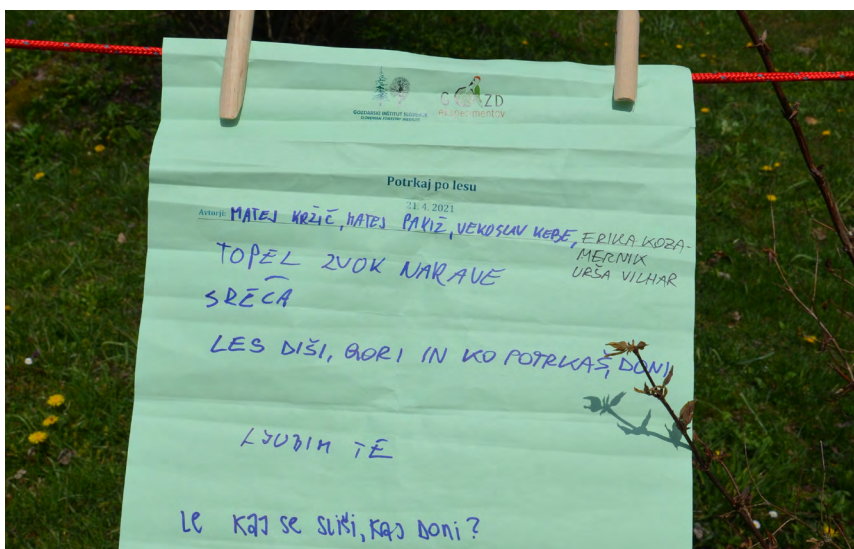 GOZDARSKI INŠTITUT SLOVENIJE
SLOVENIAN FORESTRY INSTITUTE
GOZD
eksperimentov
Potrkaj po lesu
21. 4. 2021
Avtorji: MATEJ KRŽIČ, MATEJ PAKIŽ, VEKOSLAV KEBE, ERIKA KOZA-
MERNIK
URŠA VILHAR
TOPEL ZVOK NARAVE
SREČA
LES DIŠI, GORI IN KO POTRKAŠ, DONI
LJUBIM TE
LE KAJ SE SLIŠI, KAJ DONI?